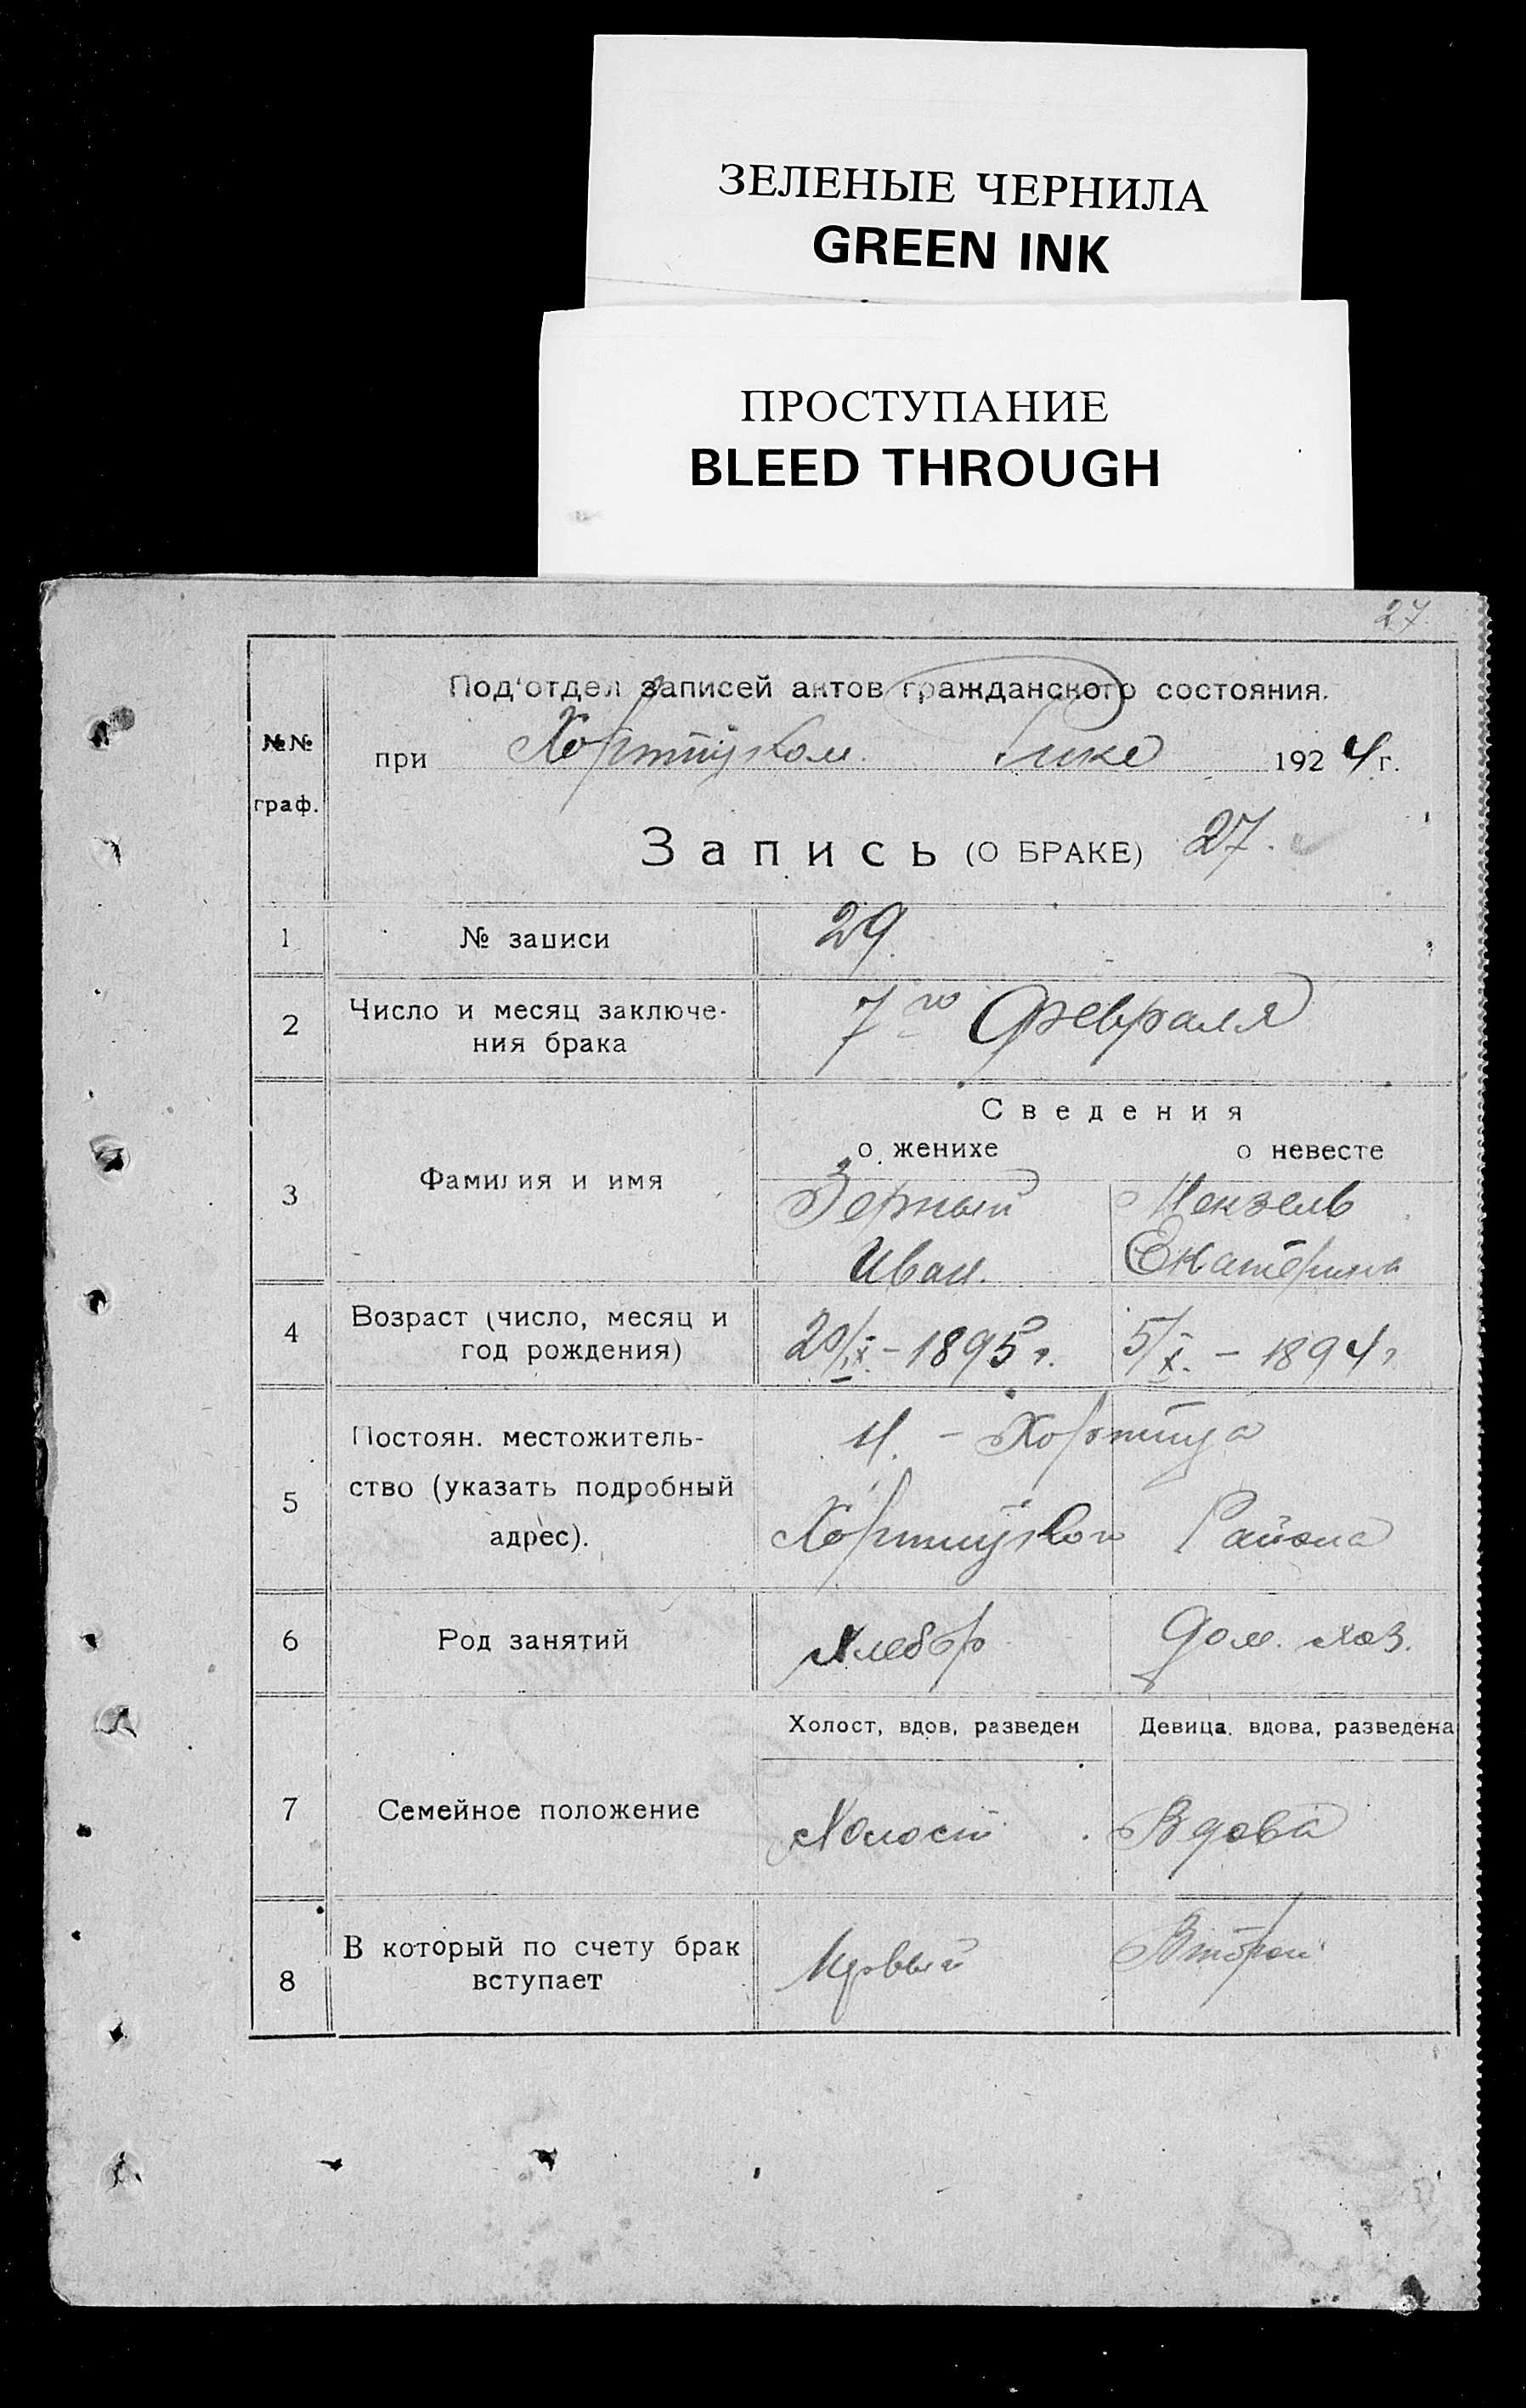 ЗЕЛЕНЫЕ ЧЕРНИЛА
GREEN INK
ПРОСТУПАНИЕ
BLEED THROUGH
27
№№ граф.
Под'отдел записей актов гражданского состояния.
при Хортицком Рике 1924 г.
Запись (О БРАКЕ) 27.
1 № записи 29.
2 Число и месяц заключе-
ния брака
7го Февраля
Сведения
о женихе о невесте
3 Фамилия и имя
Зерный Мензель
Иван. Екатерина
4 Возраст (число, месяц и
год рождения)
20/IX - 1895 г. 5/X. - 1894 г
5 Постоян. местожитель-
ство (указать подробный
адрес).
Н. - Хортица
Хортицкого Района
6 Род занятий Хлебор Дом. хоз.
Холост, вдов, разведен Девица, вдова, разведена
7 Семейное положение Холост Вдова
8 В который по счету брак
вступает
Первый Второй